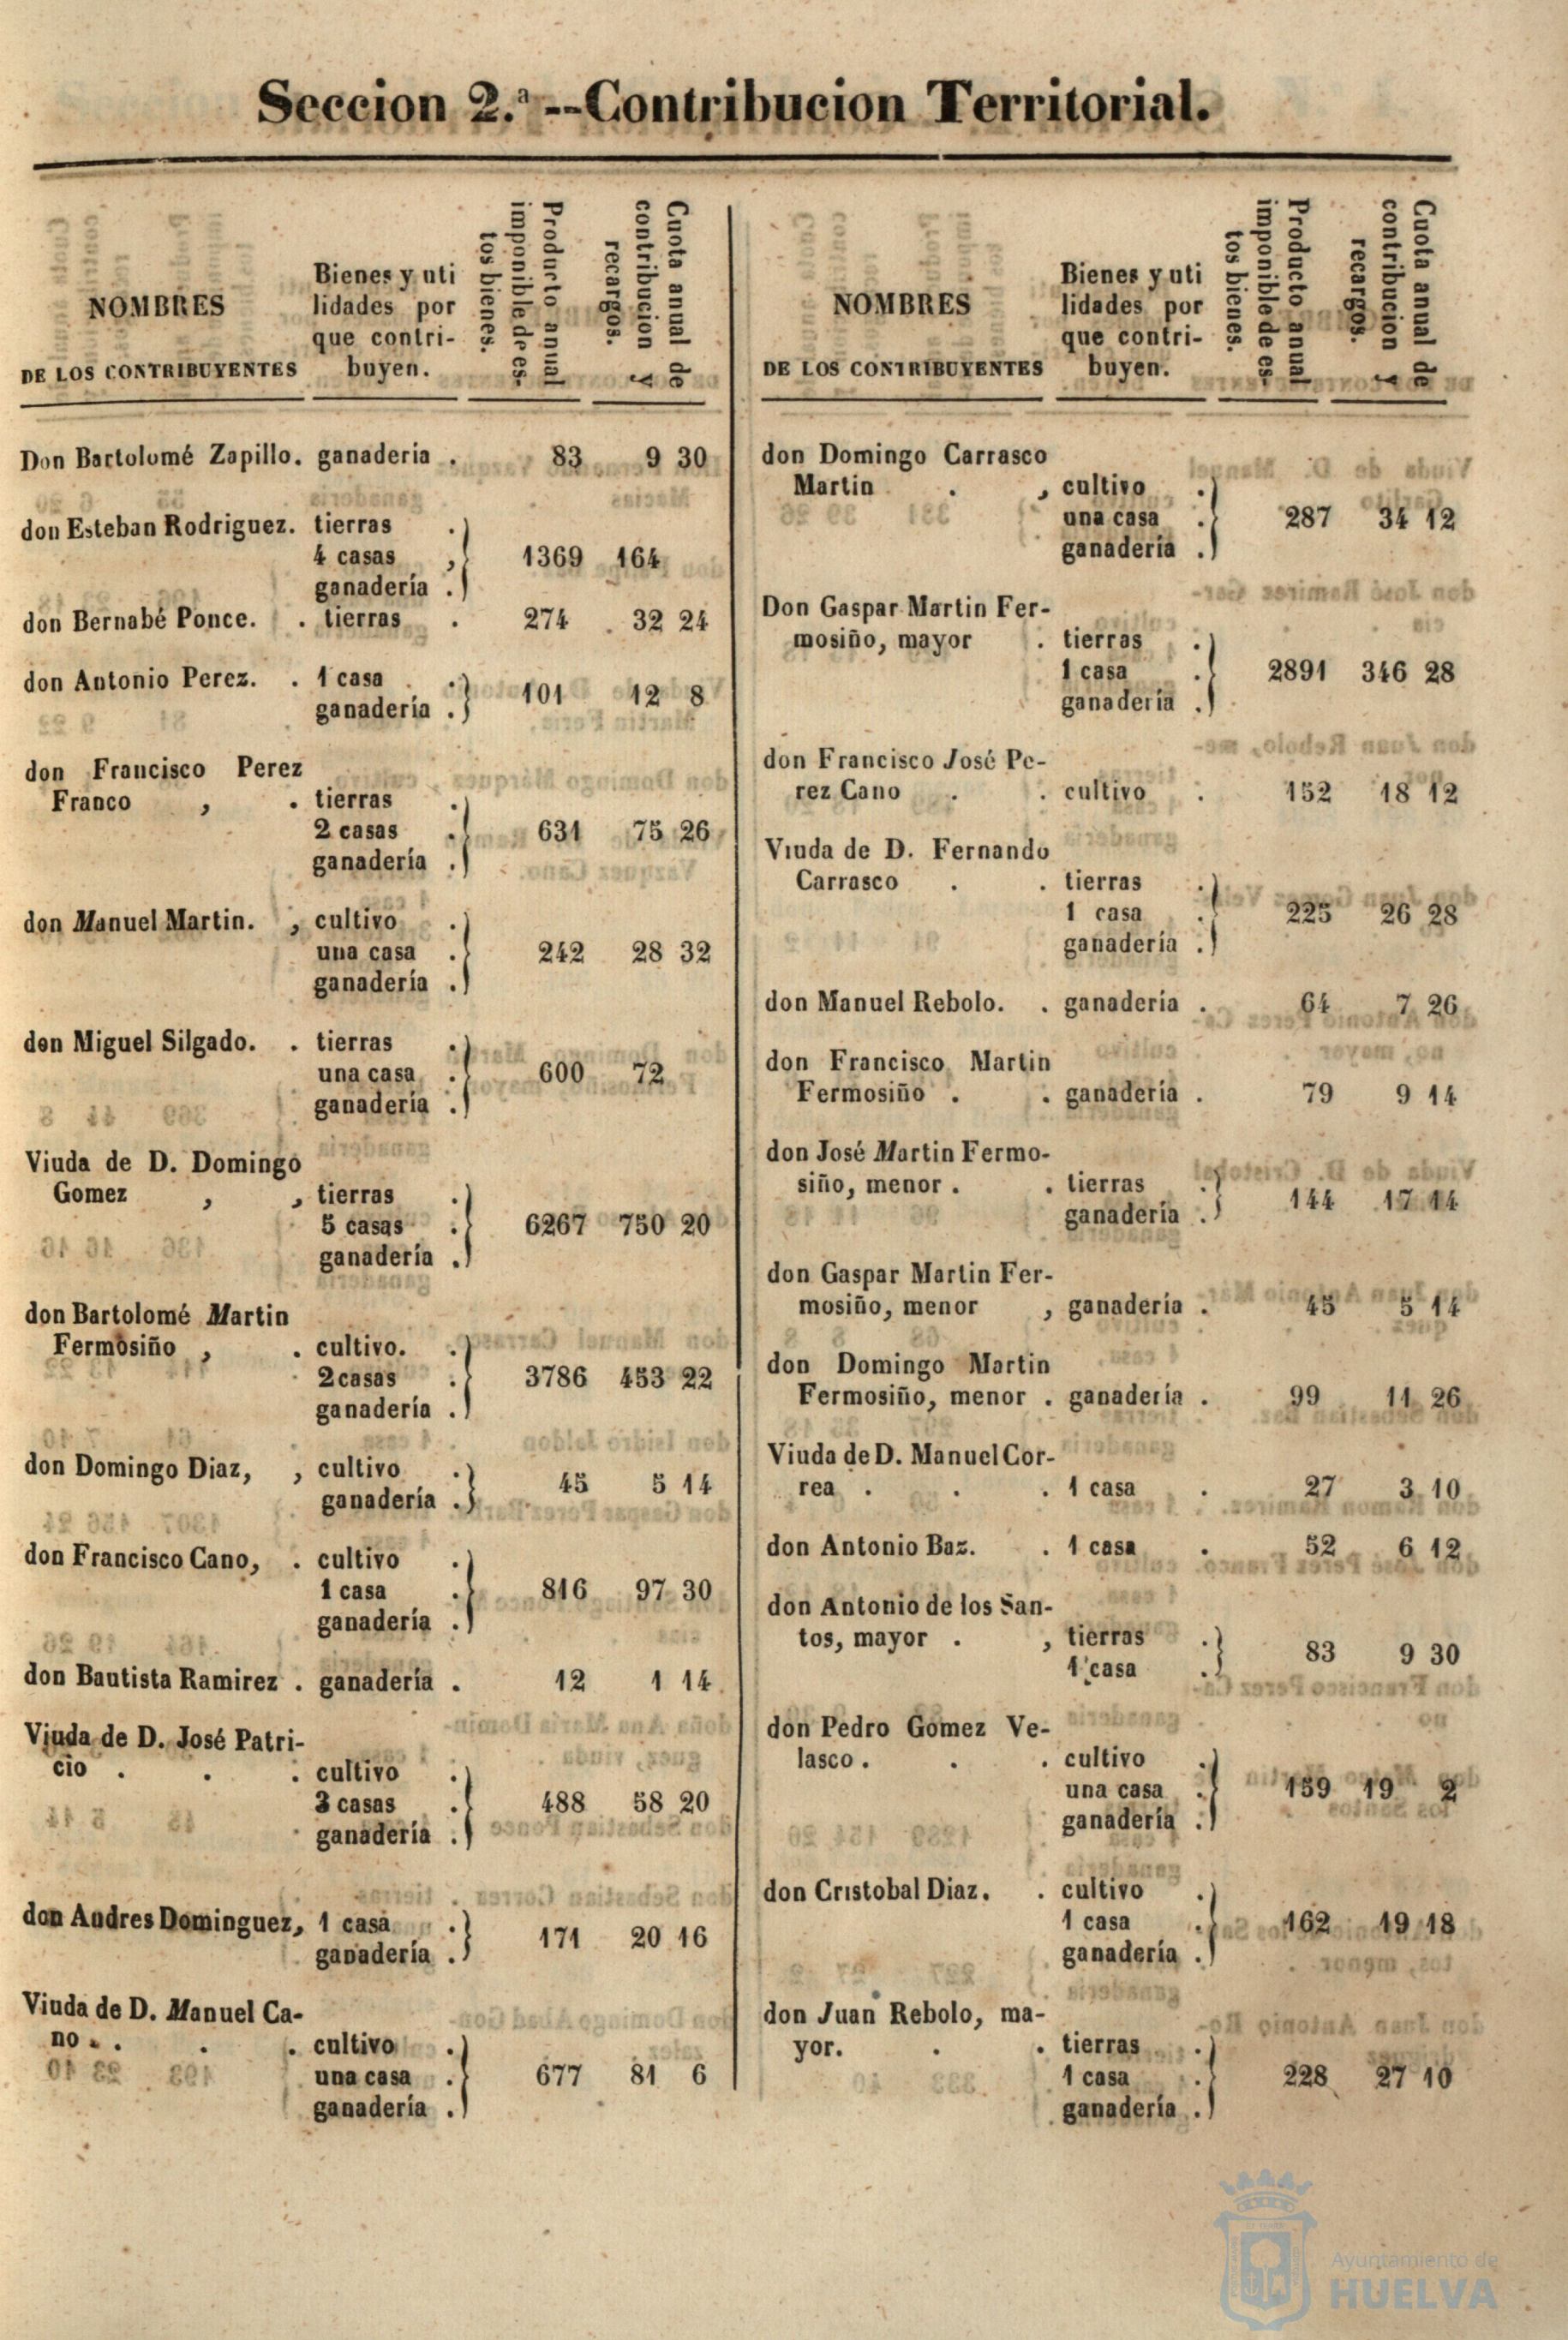 Seccion 2.ª--Contribucion Territorial.
NOMBRES
DE LOS CONTRIBUYENTES
Bienes y uti
lidades por
que contri-
buyen.
Producto anual
imponible de es-
tos bienes.
Cuota anual de
contribucion y
recargos.
Don Bartolomé Zapillo. ganaderia . 83 9 30
don Esteban Rodriguez. tierras .
4 casas , 1369 164
ganadería .
don Bernabé Ponce. . tierras . 274 . 32 24
don Antonio Perez. . 1 casa . 101 12 8
ganadería .
don Francisco Perez
Franco , . tierras .
2 casas . 631 75 26
ganadería .
don Manuel Martin. , cultivo .
una casa . 242 28 32
ganadería .
don Miguel Silgado. . tierras .
una casa . 600 72
ganadería .
Viuda de D. Domingo
Gomez , , tierras .
5 casas . 6267 750 20
ganadería .
don Bartolomé Martin
Fermosiño , . cultivo. .
2 casas . 3786 453 22
ganadería .
don Domingo Diaz, , cultivo . 45 5 14
ganadería .
don Francisco Cano, . cultivo .
1 casa . 816 97 30
ganadería .
don Bautista Ramirez . ganadería . 12 1 14
Viuda de D. José Patri-
cio . . . cultivo .
3 casas . 488 58 20
ganadería .
don Andres Dominguez, 1 casa . 171 20 16
ganadería .
Viuda de D. Manuel Ca-
no . . . . cultivo .
una casa . 677 81 6
ganadería .
NOMBRES
DE LOS CONTRIBUYENTES
Bienes y uti
lidades por
que contri-
buyen.
Producto anual
imponible de es-
tos bienes.
Cuota anual de
contribucion y
recargos.
don Domingo Carrasco
Martin . , cultivo .
una casa . 287 34 12
ganadería .
Don Gaspar Martin Fer-
mosiño, mayor . tierras .
1 casa . 2891 346 28
ganadería .
don Francisco José Pe-
rez Cano . . cultivo . 152 18 12
Viuda de D. Fernando
Carrasco . . tierras .
1 casa . 225 26 28
ganadería .
don Manuel Rebolo. . ganadería . 64 7 26
don Francisco Martin
Fermosiño . . ganadería . 79 9 14
don José Martin Fermo-
siño, menor . . tierras . 144 17 14
ganadería .
don Gaspar Martin Fer-
mosiño, menor , ganadería . 45 5 14
don Domingo Martin
Fermosiño, menor . ganadería . 99 11 26
Viuda de D. Manuel Cor-
rea . . . 1 casa . 27 3 10
don Antonio Baz. . 1 casa . 52 6 12
don Antonio de los San-
tos, mayor . , tierras . 83 9 30
1 casa .
don Pedro Gomez Ve-
lasco . . . cultivo .
una casa . 159 19 2
ganadería .
don Cristobal Diaz. . cultivo .
1 casa . 162 19 18
ganadería .
don Juan Rebolo, ma-
yor. . . tierras .
1 casa . 228 27 10
ganadería .
Ayuntamiento de
HUELVA